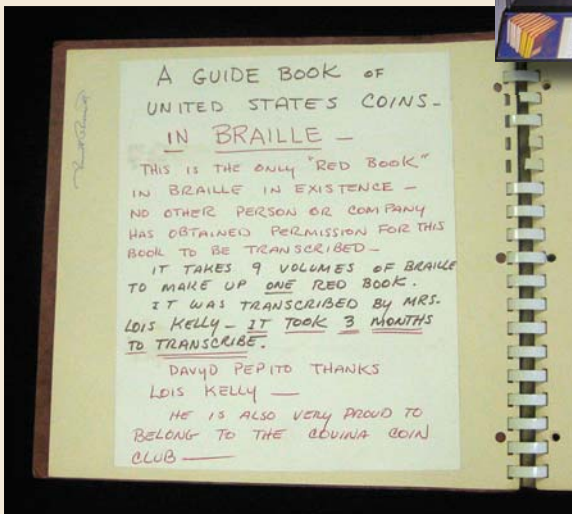 A GUIDE BOOK OF
UNITED STATES COINS -
IN BRAILLE -
THIS IS THE ONLY "RED BOOK"
IN BRAILLE IN EXISTENCE -
NO OTHER PERSON OR COMPANY
HAS OBTAINED PERMISSION FOR THIS
BOOK TO BE TRANSCRIBED -
IT TAKES 9 VOLUMES OF BRAILLE
TO MAKE UP ONE RED BOOK.
IT WAS TRANSCRIBED BY MRS.
LOIS KELLY - IT TOOK 3 MONTHS
TO TRANSCRIBE.
DAVYD PEPITO THANKS
LOIS KELLY —
HE IS ALSO VERY PROUD TO
BELONG TO THE COVINA COIN
CLUB —